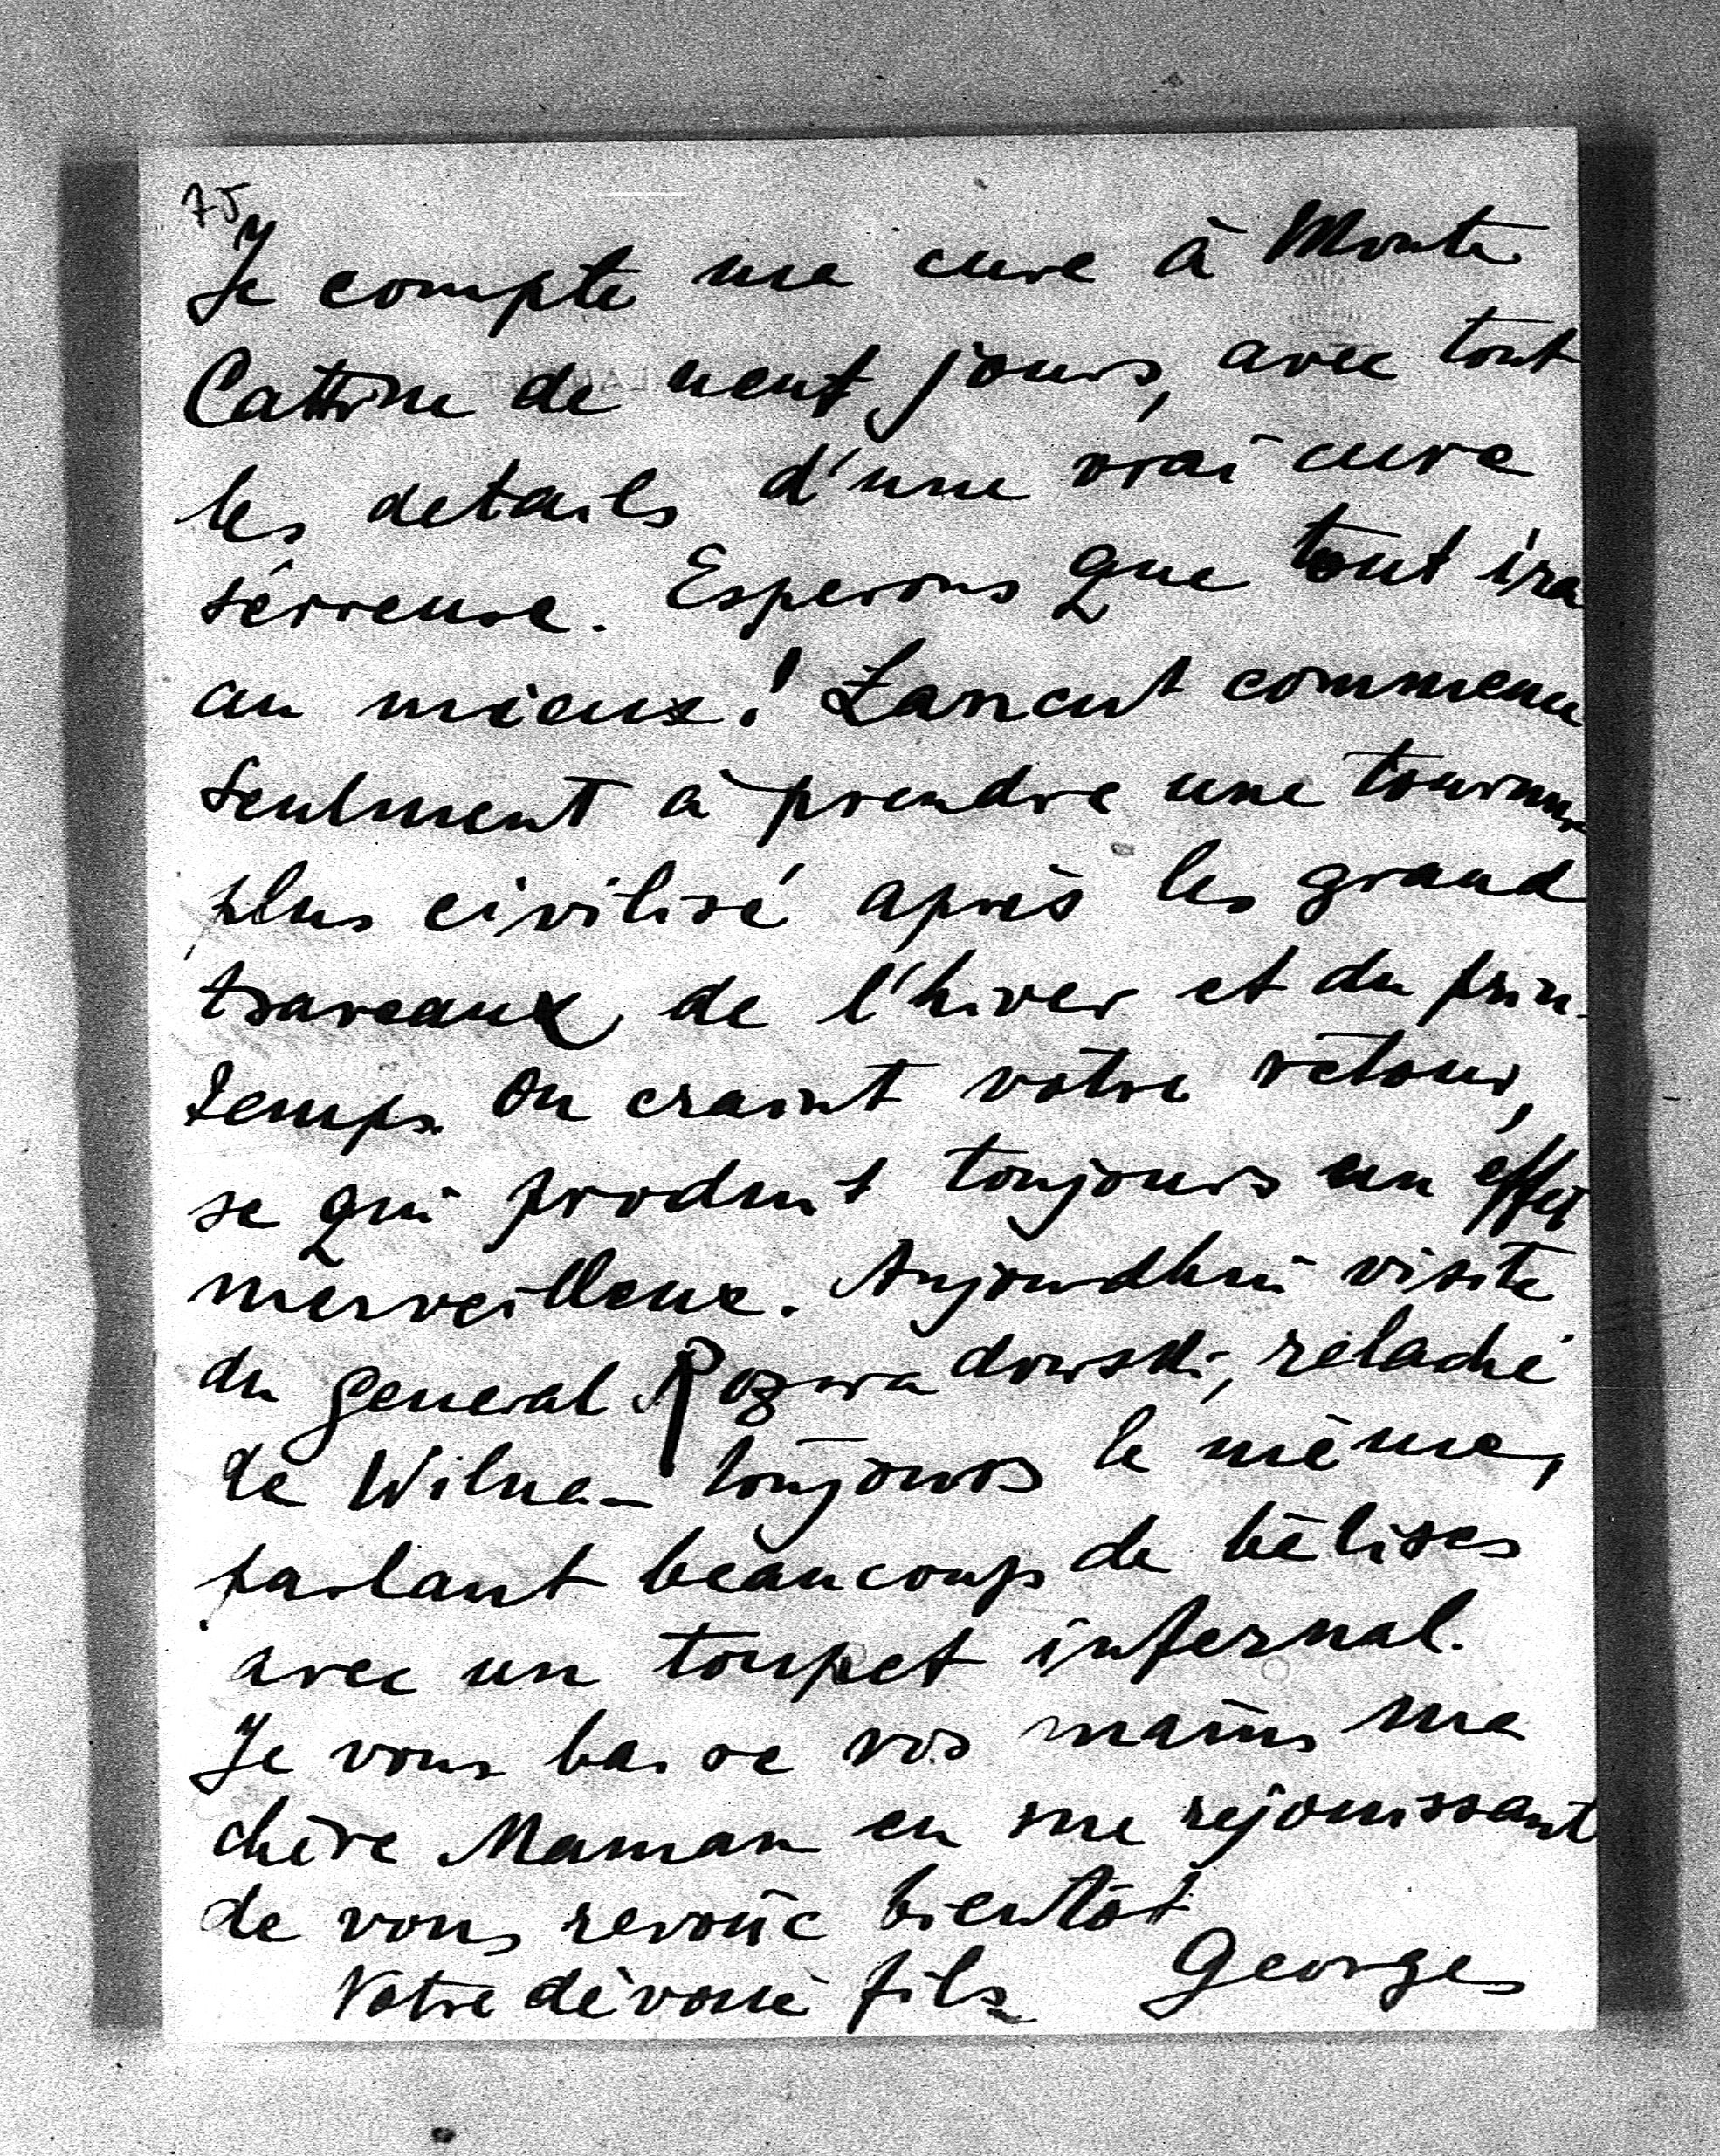 75
Je compte ma cure à Monte
Cattine de neuf jours, avec tout
les details d'une vrai cure
sérieuse. Esperons que tout ira
au mieux! Łancut commence
seulment à prendre une tournure
plus civilisé après les grand
traveaux de l'hiver et du prin-
temps. On craint votre rétour,
se qui produit toujours un effet
merveilleux. Aujourdhui visite
du general Rozwadowski, rélaché
de Wilna - toujours le même,
parlant beaucoup de bêlises
avec un toupet infernal.
Je vous baise vos mains ma
chère Maman en me rejouissant
de vous revoir bientôt
Votre dévoué fils Georges